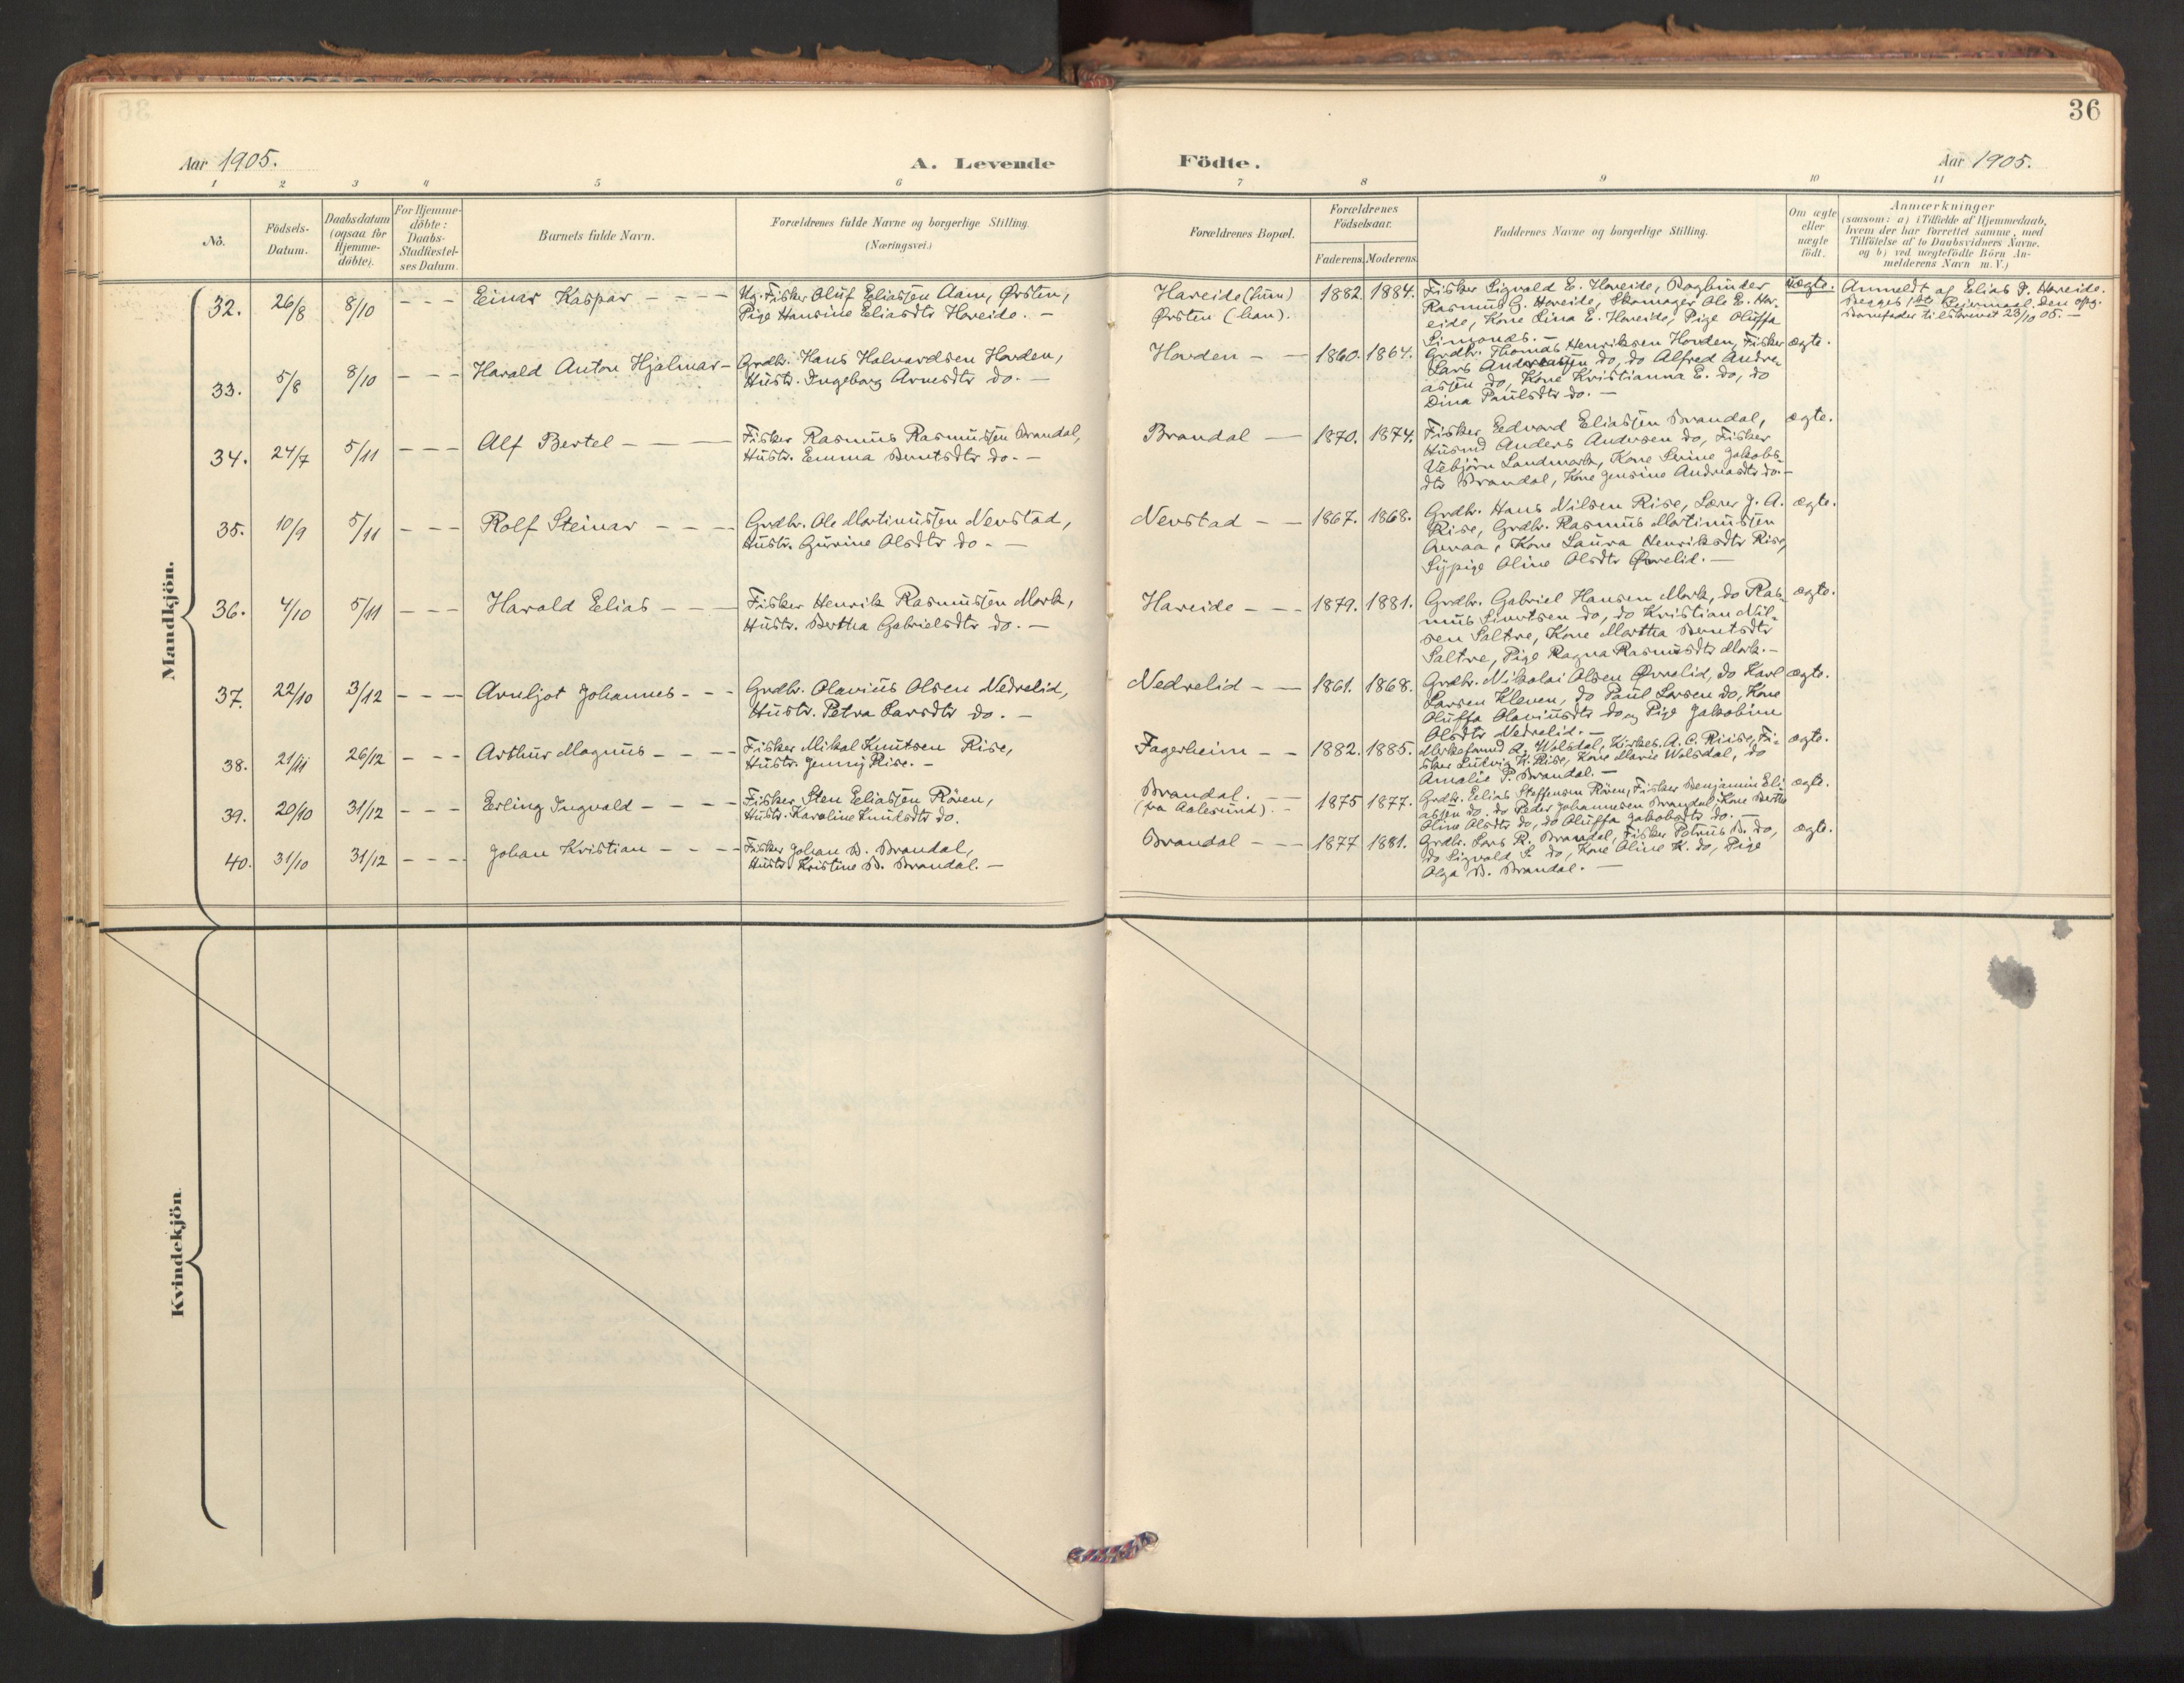 36
Aar 1905. A. Levende Födte. Aar 1905.
1 2 3 4 5 6 7 8 9 10 11
No. Födsels-Datum. Daabsdatum (ogsaa for Hjemme-döbte). For Hjemme-döbte: Daabs-Stadfestel-ses Datum. Barnets fulde Navn. Forældrenes fulde Navne og borgerlige Stilling. (Næringsvei.) Forældrenes Bopæl. Forældrenes Födselsaar. Faderens. Moderens. Faddernes Navne og borgerlige Stilling. Om ægte eller uægte födt. Anmærkninger (saasom: a) i Tilfælde af Hjemmedaab, hvem der har forrettet samme, med Tilföielse af to Daabsvidners Navne, og b) ved uægtefödte Börn An-melderens Navn m. V.)
Mandkjön.
32. 26/8 8/10 - - - Einar Kaspar - - - Ug. Fisker Oluf Eliassen Aam, Ørsten, Hareide (hun) 1882. 1884. Fisker Sigvald E. Hareide, Bogbinder uægte. Anmeldt af Elias P. Hareide.
Pige Hansine Eliasdtr Hareide. - Ørsten (han). Rasmus G. Hareide, Skomager Ole E. Har- Begges 1ste Leiermaal. Den opg.
eide, Kone Lina E. Hareide, Pige Oluffa Barnefader tilskrevet 23/10 05. -
Simonds. -
33. 5/8 8/10 - - - Harald Anton Hjalmar - Grdbr. Hans Halvardsen Hovden, Hovden - - 1860. 1864. Grdbr. Thomas Henriksen Hovden, Fisker ægte.
Hustr. Ingeborg Arnesdtr do. - Lars Andreassen do, do Alfred Andre-
assen do, Kone Kristianna E. do, do
Dina Paulsdtr do. -
34. 24/7 5/11 - - - Alf Bertel - - - Fisker Rasmus Rasmussen Brandal, Brandal - 1870. 1874. Fisker Edvard Eliassen Brandal, ægte.
Hustr. Emma Berntsdtr do. - Husmd Anders Andersen do, Fisker
Vebjörn Landmark, Kone Jakobs-
dtr Brandal, Kone Jensine Andreasdtr do. -
35. 10/9 5/11 - - - Rolf Steinar - - - Grdbr. Ole Martinussen Nevstad, Nevstad - - 1867. 1868. Grdbr. Hans Nilsen Rise, Lærer J. A. ægte.
Hustr. Gurine Olsdtr do. - Rise, Grdbr. Rasmus Martinussen
Kone Laura Henriksdtr Rise,
Sypige Oline Olsdtr Øvrelid. -
36. 4/10 5/11 - - - Harald Elias - - - Fisker Henrik Rasmussen Mork, Hareide - - - 1879. 1881. Grdbr. Gabriel Hansen Mork, do Ras- ægte.
Hustr. Bertha Gabrielsdtr do. - mus Sivertsen do, do Kristian Nil-
sen Saltre, Kone Martha Berntsdtr
Saltre, Pige Ragna Rasmusdtr Mork. -
37. 22/10 3/12 - - - Arnljot Johannes - - - Grdbr. Olavius Olsen Nedrelid, Nedrelid - - 1861. 1868. Grdbr. Nikolai Olsen Øvrelid, do Karl ægte.
Hustr. Petra Larsdtr do. - Larsen Kleven, do Paul Larsen do, Kone
Oluffa Olaviusdtr do og Pige Jakobine
Olsdtr Nedrelid. -
38. 21/11 26/12 - - - Arthur Magnus - - - Fisker Mikal Knutsen Rise, Fagerheim - - 1882. 1885. A. Wolsdal, Kirkes. A. C. Riise, Fi- ægte.
Hustr. Jenny Rise. - sker Ludvig K. Rise, Kone Marie Wolsdal, do
Amalie P. Brandal. -
39. 20/10 31/12 - - - Erling Ingvald - - - Fisker Sten Eliassen Röven, Brandal. - - 1875 1877. Grdbr. Elias Steffensen Röven, Fisker Benjamin Eli- ægte.
Hustr. Karoline Knudsdtr do. (fra Aalesund). - assen do, do Peder Johannesen Brandal, Kone Berthe
Oline Olsdtr do, do Oluffa Jakobsdtr do. -
40. 31/10 31/12 - - - Johan Kristian - - - Fisker Johan B. Brandal, Brandal - - - 1877 1881. Grdbr. Lars R. Brandal, Fisker Petrus B. do, ægte.
Hustr. Kristine B. Brandal. - do Sigvald S. do, Kone Oline K. do, Pige
Olga B. Brandal. -
Kvindekjön.